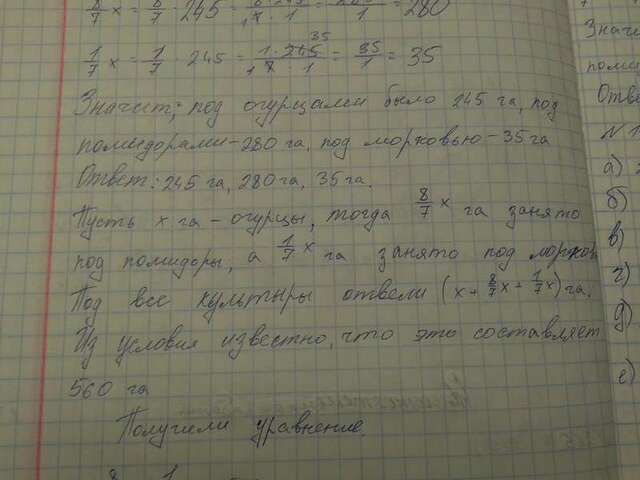 8/7 x = 8/7 · 245 = 8·245/7·1 = 280/1 = 280
1/7 x = 1/7 · 245 = 1·245/7·1 = 35/1 = 35
Значит, под огурцами было 245 га, под
помидорами-280 га, под морковью-35 га
Ответ: 245 га, 280 га, 35 га.
Пусть x га - огурцы, тогда 8/7 x га занято
под помидоры, а 1/7 x га занято под морков
Под все культуры отвели (x + 8/7x + 1/7x) га.
Из условия известно, что это составляет
560 га
Получили уравнение.
Значи
поми
Отве
N 1
а) 2
б)
в)
г)
д)
е)